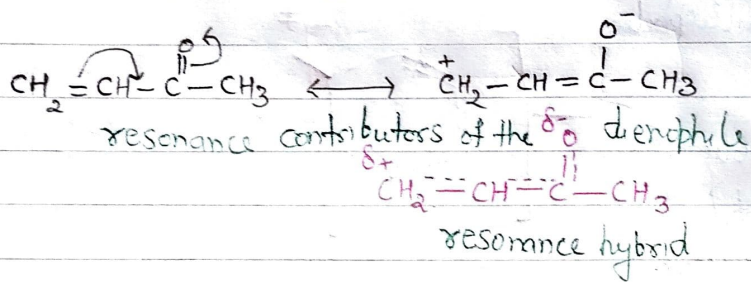 O O⁻
CH₂=CH–C–CH₃ ⟷ ⁺CH₂–CH=C–CH₃
resonance contributors of the dienophile
δ⁻O
δ+
CH₂=CH=C–CH₃
resonance hybrid